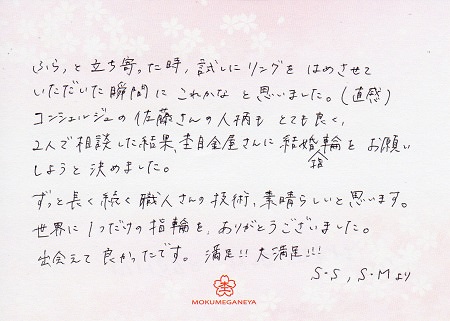 ふらっと立ち寄った時、試しにリングをはめさせて
いただいた瞬間にこれかなと思いました。(直感)
コンシェルジュの佐藤さんの人柄もとても良く、
2人で相談した結果、杢目金屋さんに結婚指輪をお願い
しようと決めました。
ずっと長く続く職人さんの技術、素晴らしいと思います。
世界に1つだけの指輪を、ありがとうございました。
出会えて良かったです。満足!! 大満足!!!
S・S, S・Mより
MOKUMEGANEYA